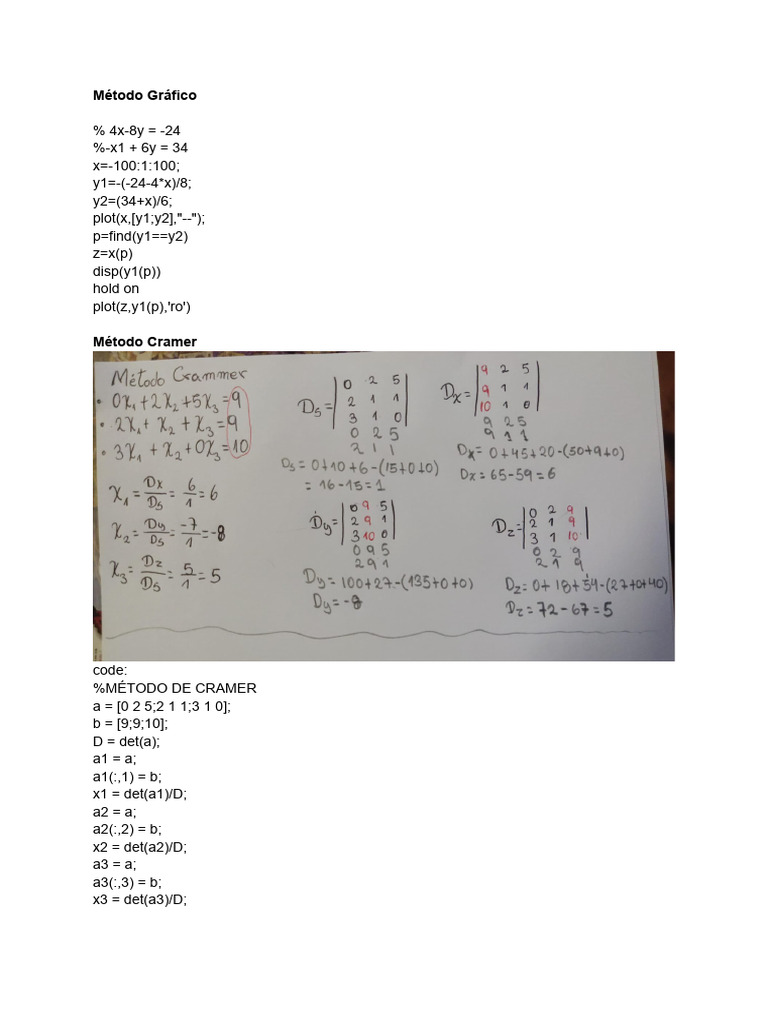 Método Gráfico
% 4x-8y = -24
%-x1 + 6y = 34
x=-100:1:100;
y1=-(-24-4*x)/8;
y2=(34+x)/6;
plot(x,[y1;y2],"--");
p=find(y1==y2)
z=x(p)
disp(y1(p))
hold on
plot(z,y1(p),'ro')
Método Cramer
Método Crammer
• 0X₁+2X₂+5X₃=9
• 2X₁+X₂+X₃=9
• 3X₁+X₂+0X₃=10
X₁=Dx/Ds=6/1=6
X₂=Dy/Ds=-7/1=-8
X₃=Dz/Ds=5/1=5
Ds=
0 2 5
2 1 1
3 1 0
0 2 5
2 1 1
Ds=0+10+6-(15+0+0)
=16-15=1
Dx=
9 2 5
9 1 1
10 1 0
9 2 5
9 1 1
Dx=0+45+20-(50+9+0)
Dx=65-59=6
Dy=
0 9 5
2 9 1
3 10 0
0 9 5
2 9 1
Dy=100+27-(135+0+0)
Dy=-8
Dz=
0 2 9
2 1 9
3 1 10
0 2 9
2 1 9
Dz=0+18+54-(27+0+40)
Dz=72-67=5
code:
%MÉTODO DE CRAMER
a = [0 2 5;2 1 1;3 1 0];
b = [9;9;10];
D = det(a);
a1 = a;
a1(:,1) = b;
x1 = det(a1)/D;
a2 = a;
a2(:,2) = b;
x2 = det(a2)/D;
a3 = a;
a3(:,3) = b;
x3 = det(a3)/D;